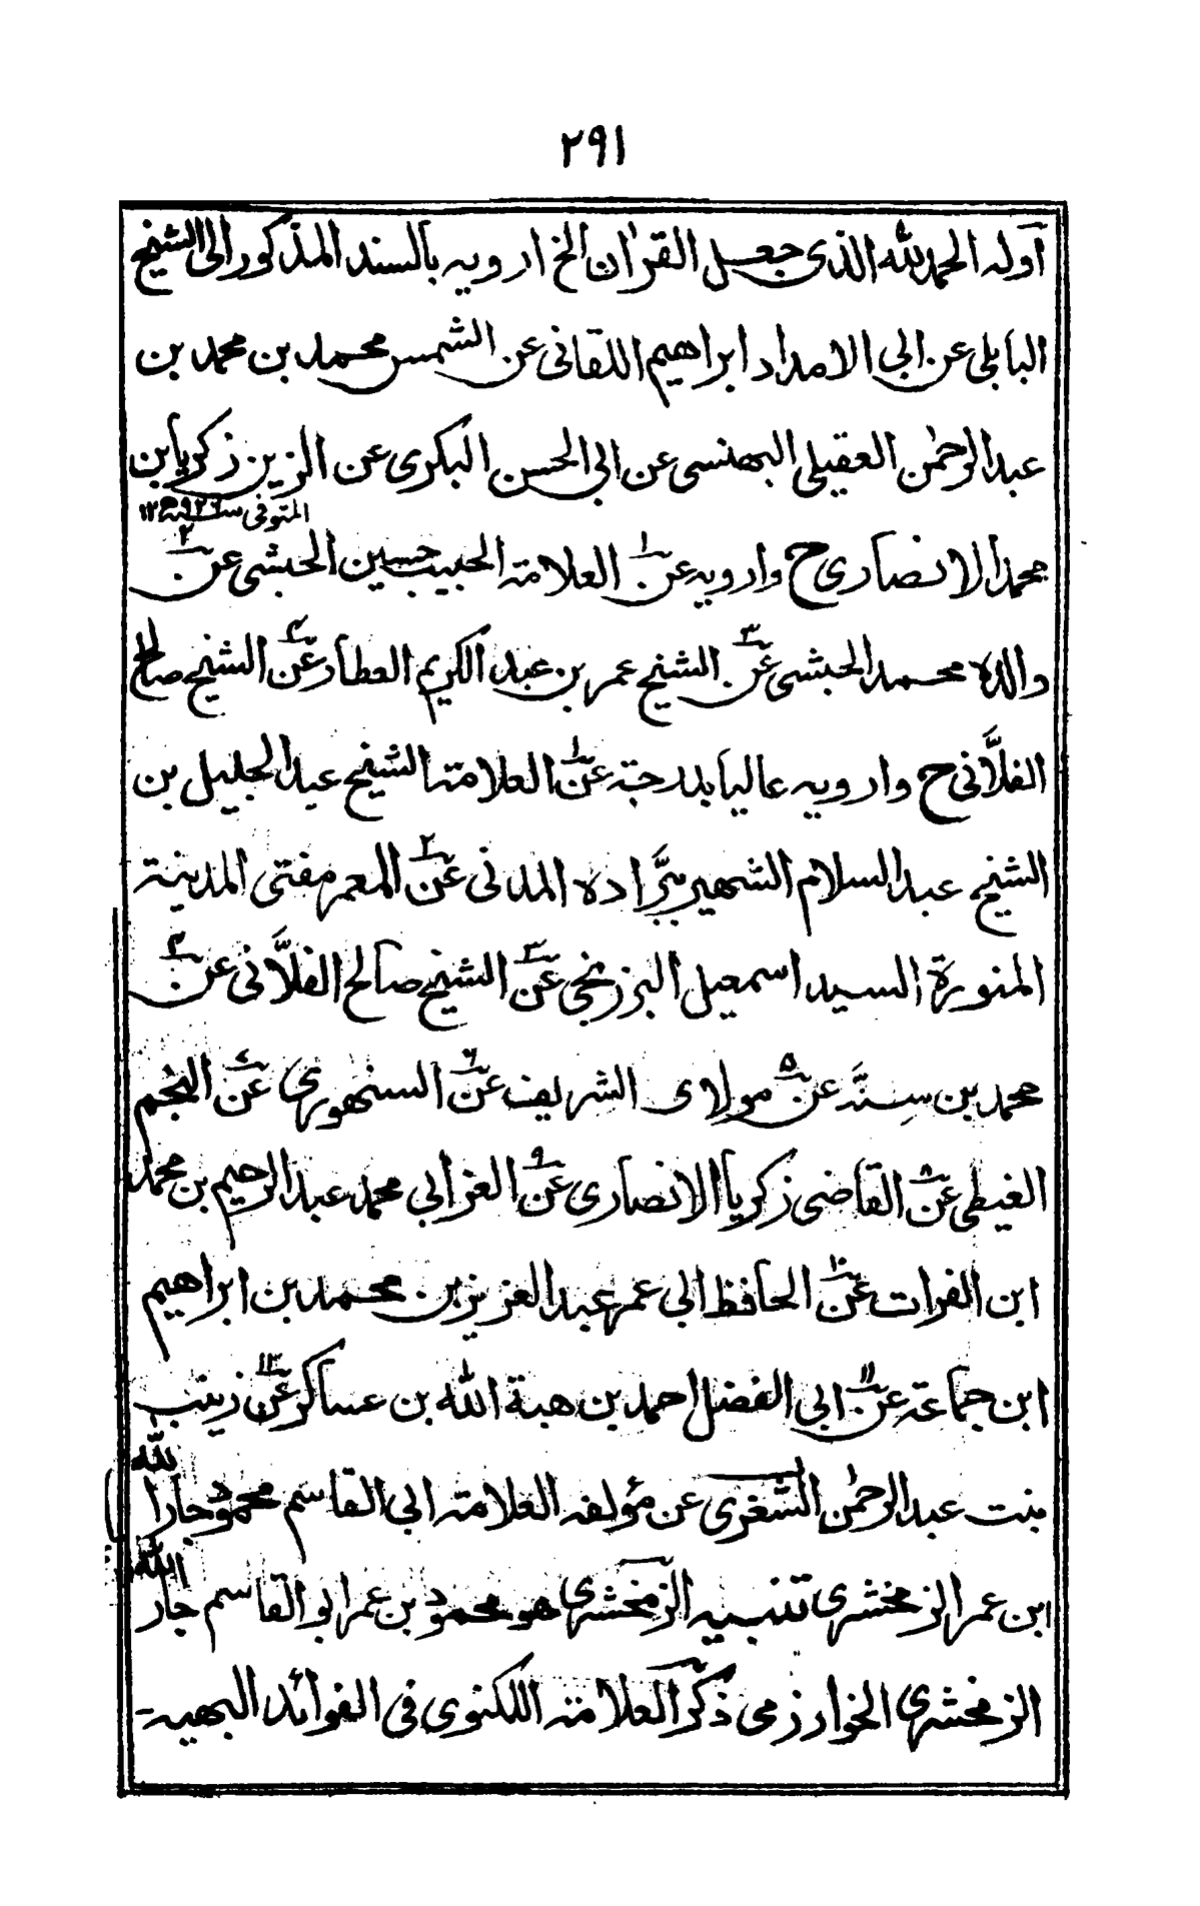 ٢٩١
اوله الحمد لله الذى جعل القرآن الخ ارويه بالسند المذكور الى الشيخ
البابلى عن ابى الامداد ابراهيم اللقانى عن الشمس محمد بن محمد بن
عبد الرحمٰن العقيلى البهنسى عن ابى الحسن البكرى عن الزين زكريا بن
المتوفى سنة ٩٢٦ھ ١٢
محمد الانصارى ح وارويه عن ١ العلامة الحبيب حسين الحبشى عن ٢
والده محمد الحبشى عن ٣ الشيخ عمر بن عبد الكريم العطار عن ٤ الشيخ صالح
الفلَّانى ح وارويه عاليا بدرجة عن ١ العلامة الشيخ عبد الجليل بن
الشيخ عبد السلام الشهير ببرَّاده المدنى عن ٢ المعمر مفتى المدينة
المنورة السيد اسمعيل البرزنجى عن ٣ الشيخ صالح الفلَّانى عن ٤
محمد بن سِنَّه عن ٥ مولاى الشريف عن ٦ السنهورى عن ٧ النجم
الغيطى عن ٨ القاضى زكريا الانصارى عن ٩ العز ابى محمد عبد الرحيم بن محمد
ابن الفرات عن ١٠ الحافظ ابى عمر عبد العزيز بن محمد بن ابراهيم
ابن جماعة عن ١١ ابى الفضل احمد بن هبة الله بن عساكر عن ١٢ زينب
بنت عبد الرحمٰن الشعرى عن مؤلفه العلامة ابى القاسم محمود جار الله
ابن عمر الزمخشرى تنبيه الزمخشرى هو محمود بن عمر ابو القاسم جار الله
الزمخشرى الخوارزمى ذكر العلامة اللكنوى فى الفوائد البهيه-